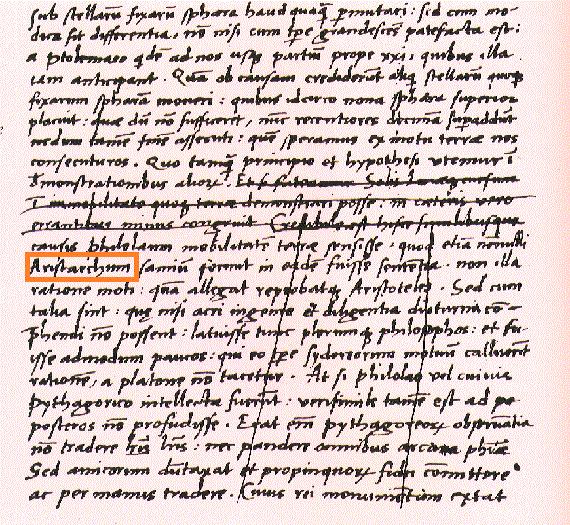 sub stellarũ fixarũ sphæra haud quaqꝫ p̃mutari : sed cum mo-
dica sit differentia, nõ nisi cum tp̃e grandescẽs patefacta est :
a ptolemæo qdẽ ad nos usqꝫ partiũ prope xxi, quibus illa
iam anticipant . Quã ob causam crediderũt aliq stellarũ quoqꝫ
fixarum sphæram moveri : quibus idcirco nona sphæra superior
placuit : quæ dũ nõ sufficeret, nũc recentiores decimã suꝑaddũt
nedum tamẽ finẽ assecuti : quẽ speramus ex motu terræ nos
consecuturos . Quo tamqꝫ principio et hypothesi utemur ĩ
demonstrationibus alioꝝ . Et si fateamur Solis Lunæqꝫ cursum
ĩ immobilitate quoqꝫ terræ demonstrari posse : in cæteris vero
errantibus minus congruit . Credibile est hisce similibusqꝫ
causis philolaum mobilitatẽ terræ sensisse . quod etiã nonulli
Aristarchum samiũ ferunt in eadẽ fuisse sententia . non illa
ratione moti : quã allegat reprobatqꝫ Aristoteles . Sed cum
talia sint : quæ nisi acri ingenio et diligentia diuturna cõ-
prehendi nõ possent : latuisse tunc plerumqꝫ philosophos : et fu-
isse admodum paucos : qui eo tp̃e sydereorum motuum calluerĩt
rationẽ, a platone nõ tacetur . At si philolao vel cuivis
pythagorico intellecta fuerĩt : verisimile tamẽ est ad po-
posteros nõ profudisse . Erat em̃ pythagoreoꝝ observatia
nõ tradere : nec pandere omnibus arcana phiæ
Sed amicorum dũtaxat et propinquoꝝ fidei cõmittere
ac per manus tradere . Cuius rei monumẽtum extat